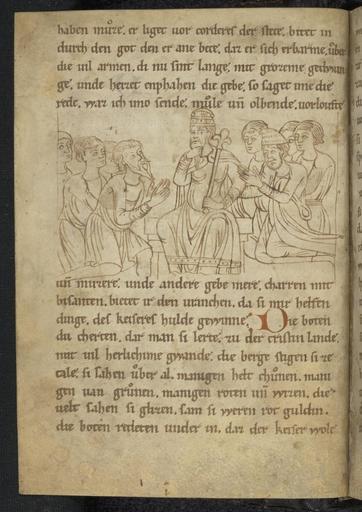 haben muͦze. er liget vor corderes der stete. bitet in
durch den got den er ane bete. daz er sich erbarme. uͤber
die uil armen. di nu sint lange. mit grozeme gethwan
ge. unde herzet enphahen die gebe. so saget ime die
rede. waz ich imo sende. muͤle un olbende. uorloufte
un muzere. unde andere gebe mere. charren mit
bisanten. bietet ir den uranchen. da si mir helfen
dinge. des keiseres hulde gewinne. Die boten
du cherten. dar man si lerte. zu der cristin lande.
mit uil herlichime gwande. die berge stigen si ze
tale. si sahen uͤber al. manigen helt chuͦnen. mani
gen uan gruͦnen. manigen roten un wizen. die
uelt sahen si glizen. sam si weren rot guldin.
die boten redeten under in. daz der keiser wole